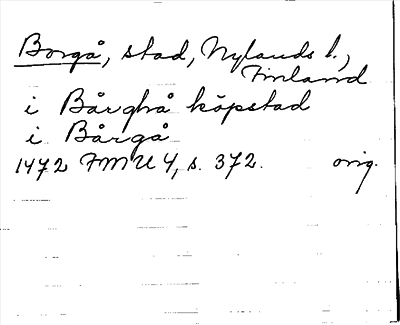 Borgå, stad, Nylands l.,
Finland
i Bårghå köpstad
i Bårgå
1472 FMU 4, s. 372. orig.